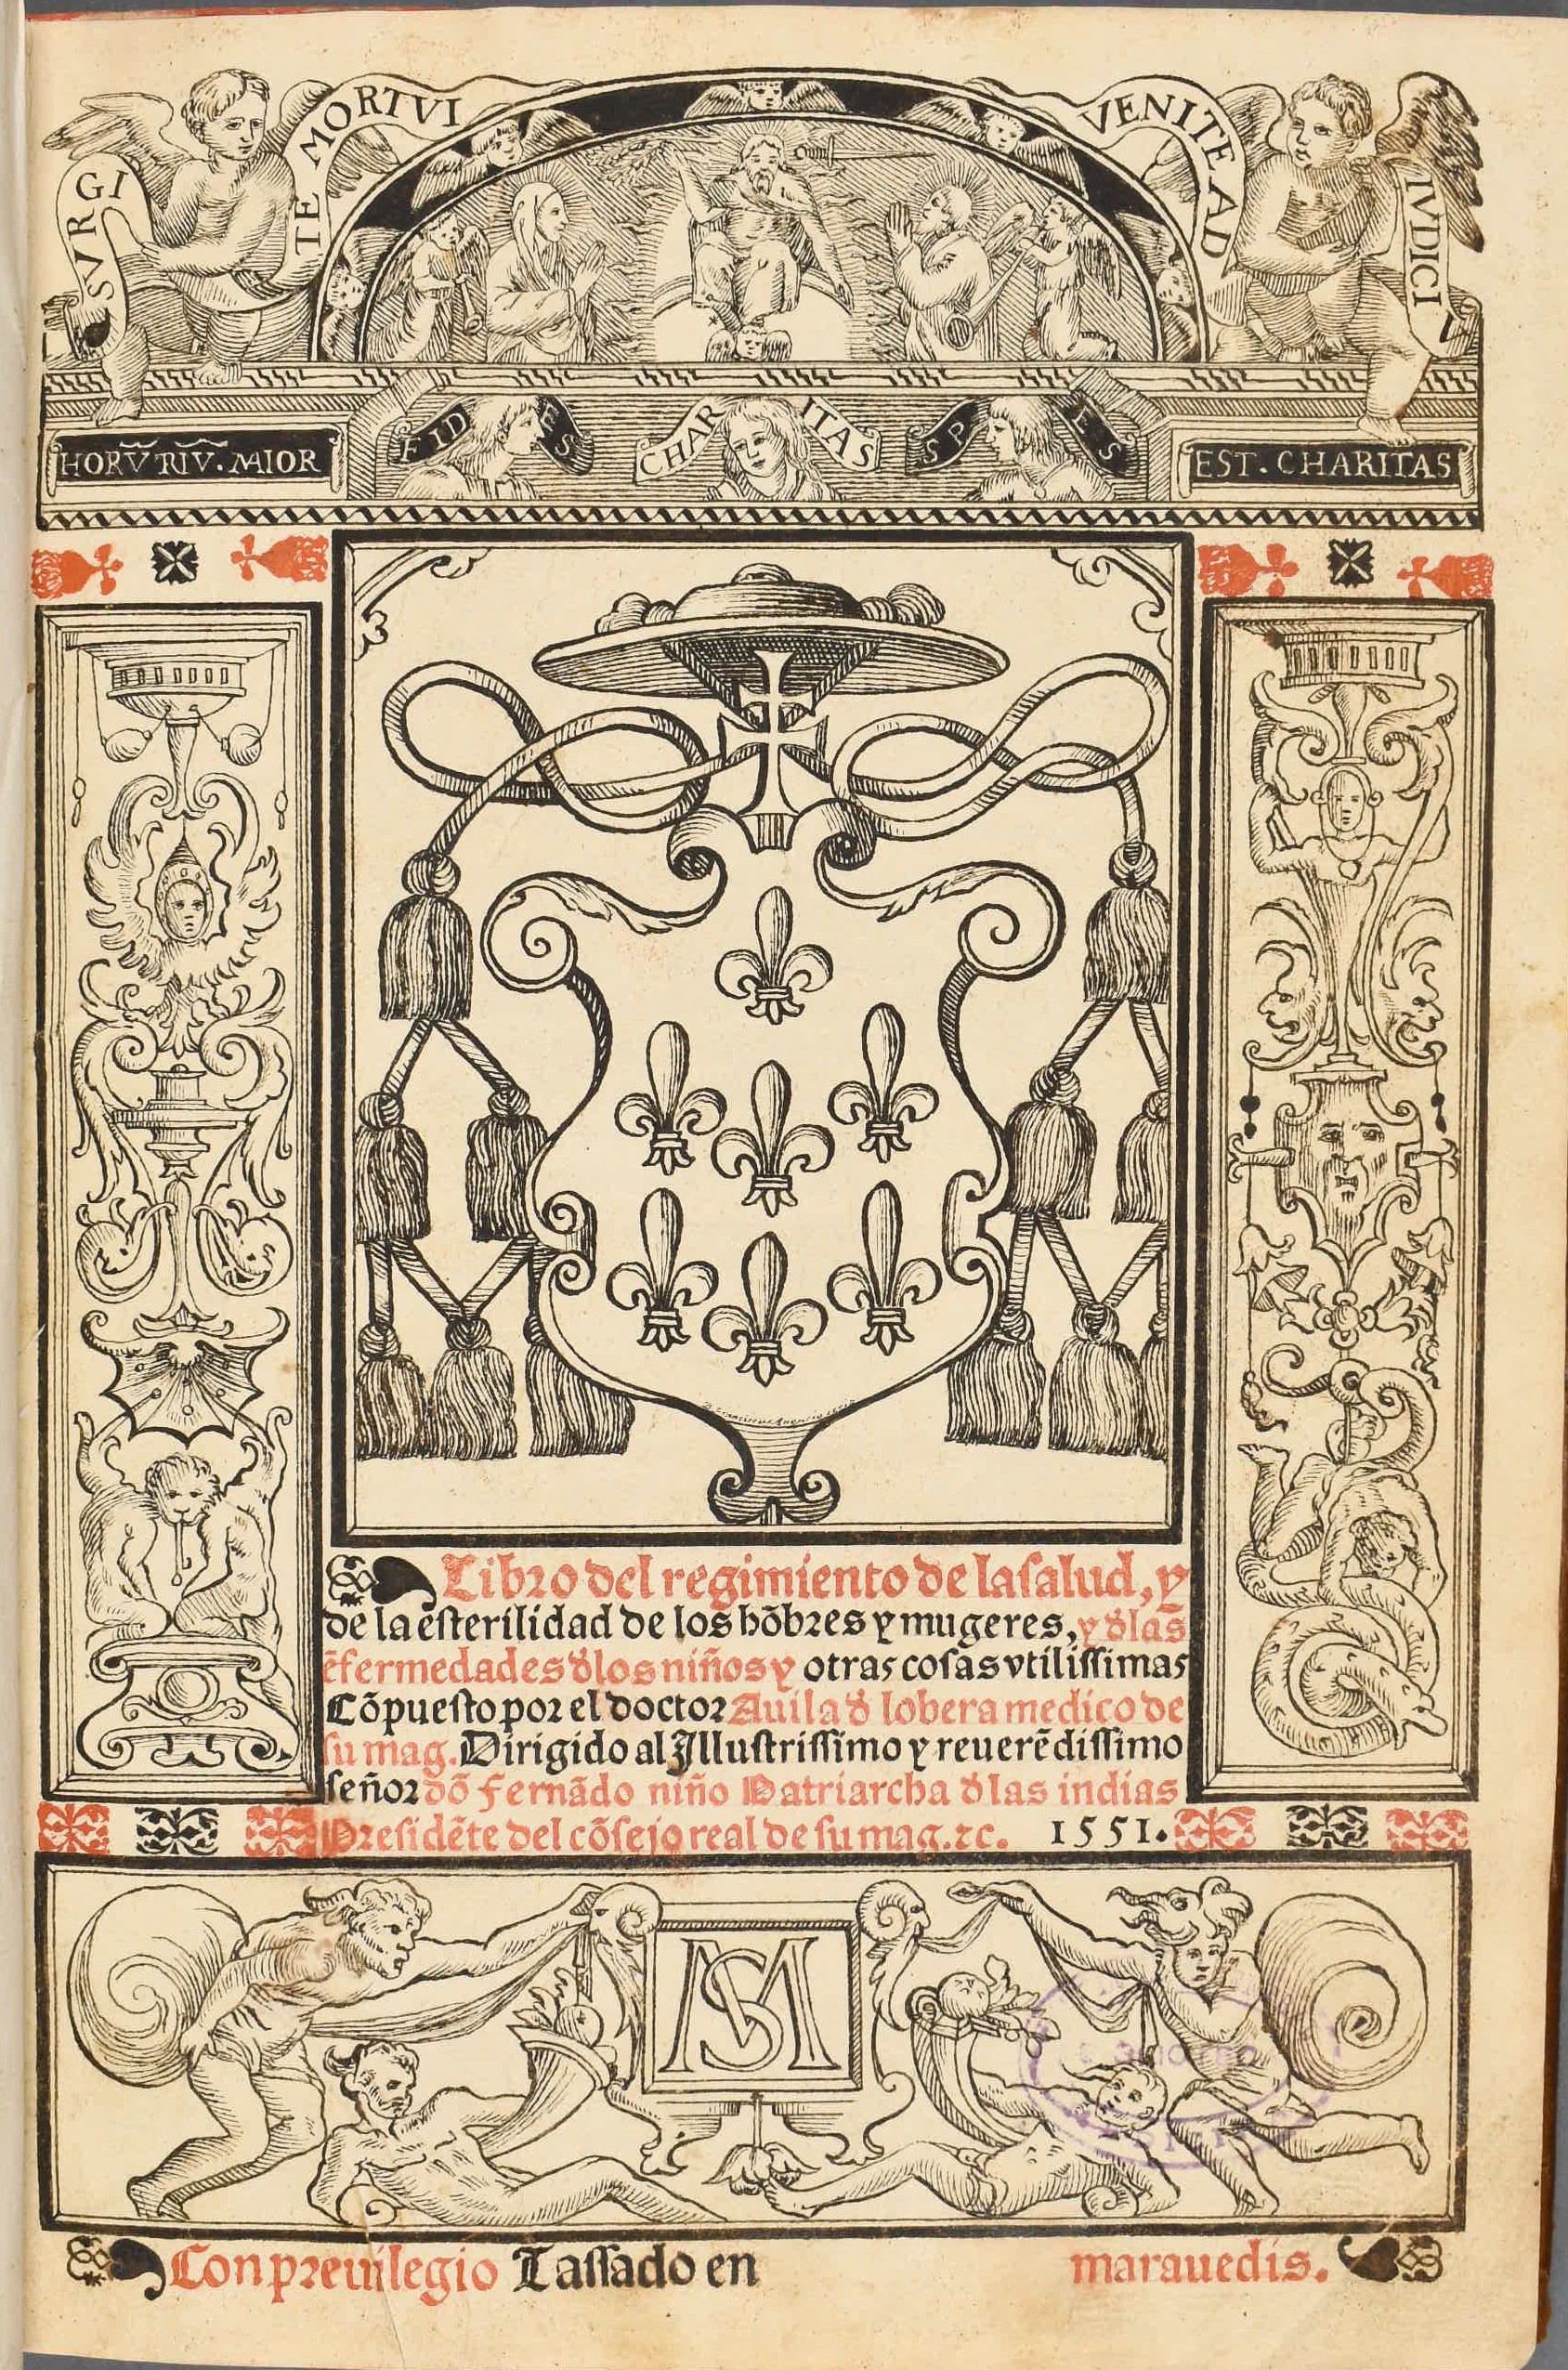 SVRGI TE MORTVI VENITE AD IVDICIV
FIDES CHARITAS SPES
HORV̄ TRIV̄. MAIOR EST. CHARITAS
Libro del regimiento de la ſalud, y
de la eſterilidad de los hōbres y mugeres, y đlas
ēfermedades đlos niños y otras coſas vtiliſſimas
Cōpueſto por el doctor Auila đ lobera medico de
ſu mag. Dirigido al Illuſtriſſimo y reuerēdiſſimo
ſeñor dō Fernādo niño Patriarcha đ las indias
Preſidēte del cōſejo real de ſu mag. ⁊c. 1551.
SM
Con preuilegio Taſſado en marauedis.